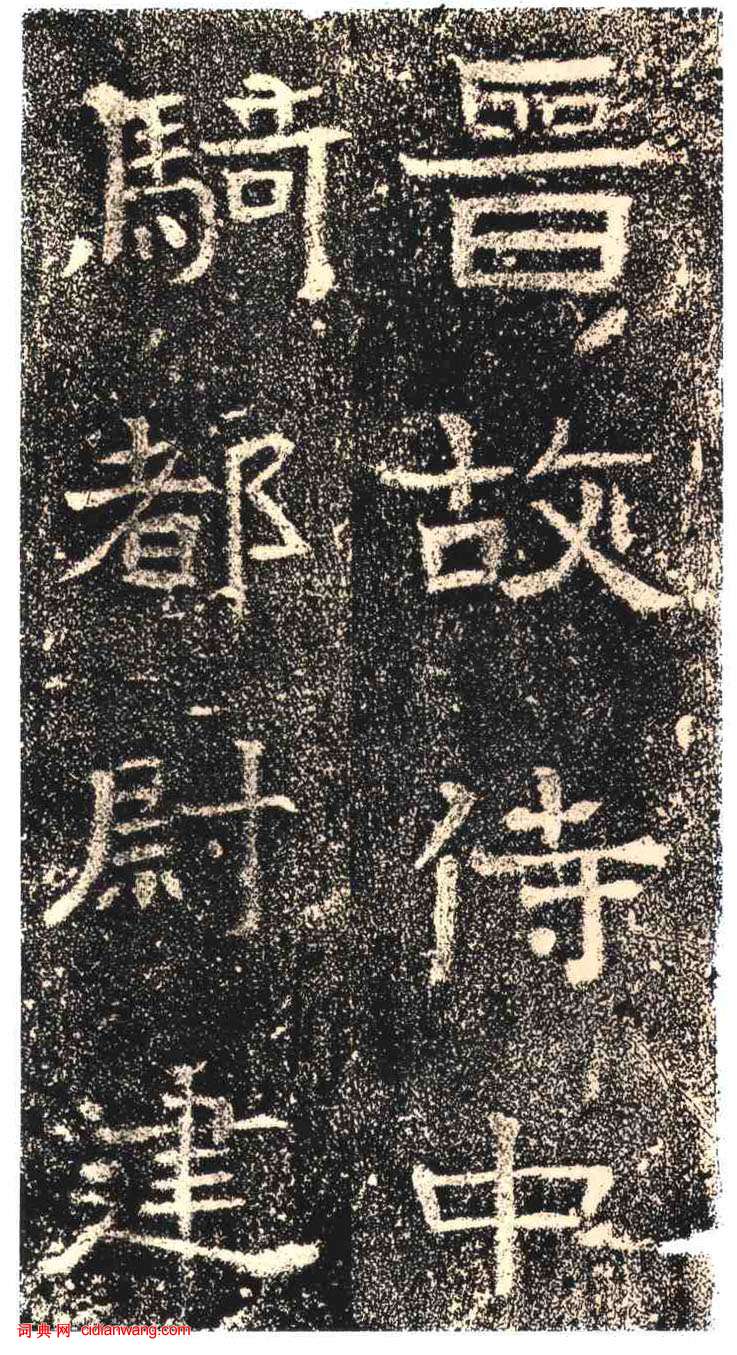 晉故侍中
騎都尉建
词典网 cidianwang.com